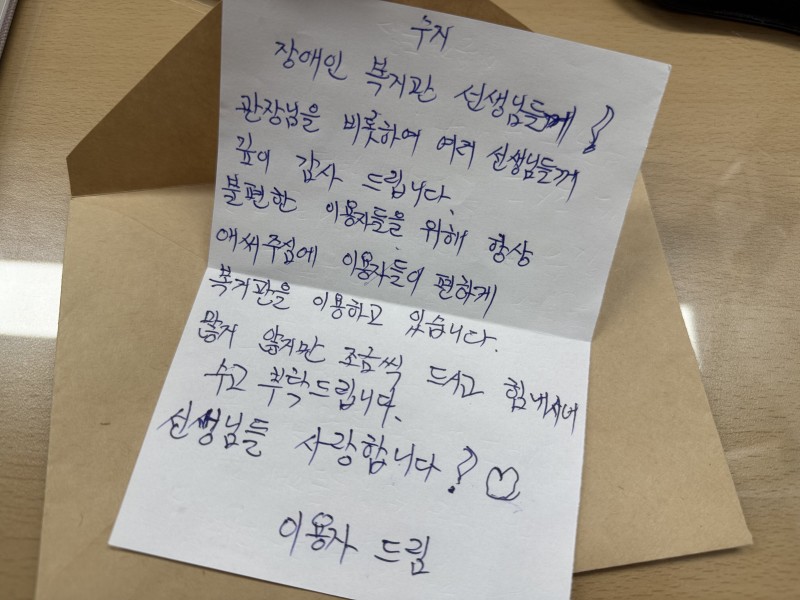 수지
장애인 복지관 선생님들께!
관장님을 비롯하여 여러 선생님들께
깊이 감사 드립니다.
불편한 이용자들을 위해 항상
애써주심에 이용자들이 편하게
복지관을 이용하고 있습니다.
많지 않지만 조금씩 드시고 힘내시어
수고 부탁드립니다.
선생님들 사랑합니다! ♡
이용자 드림